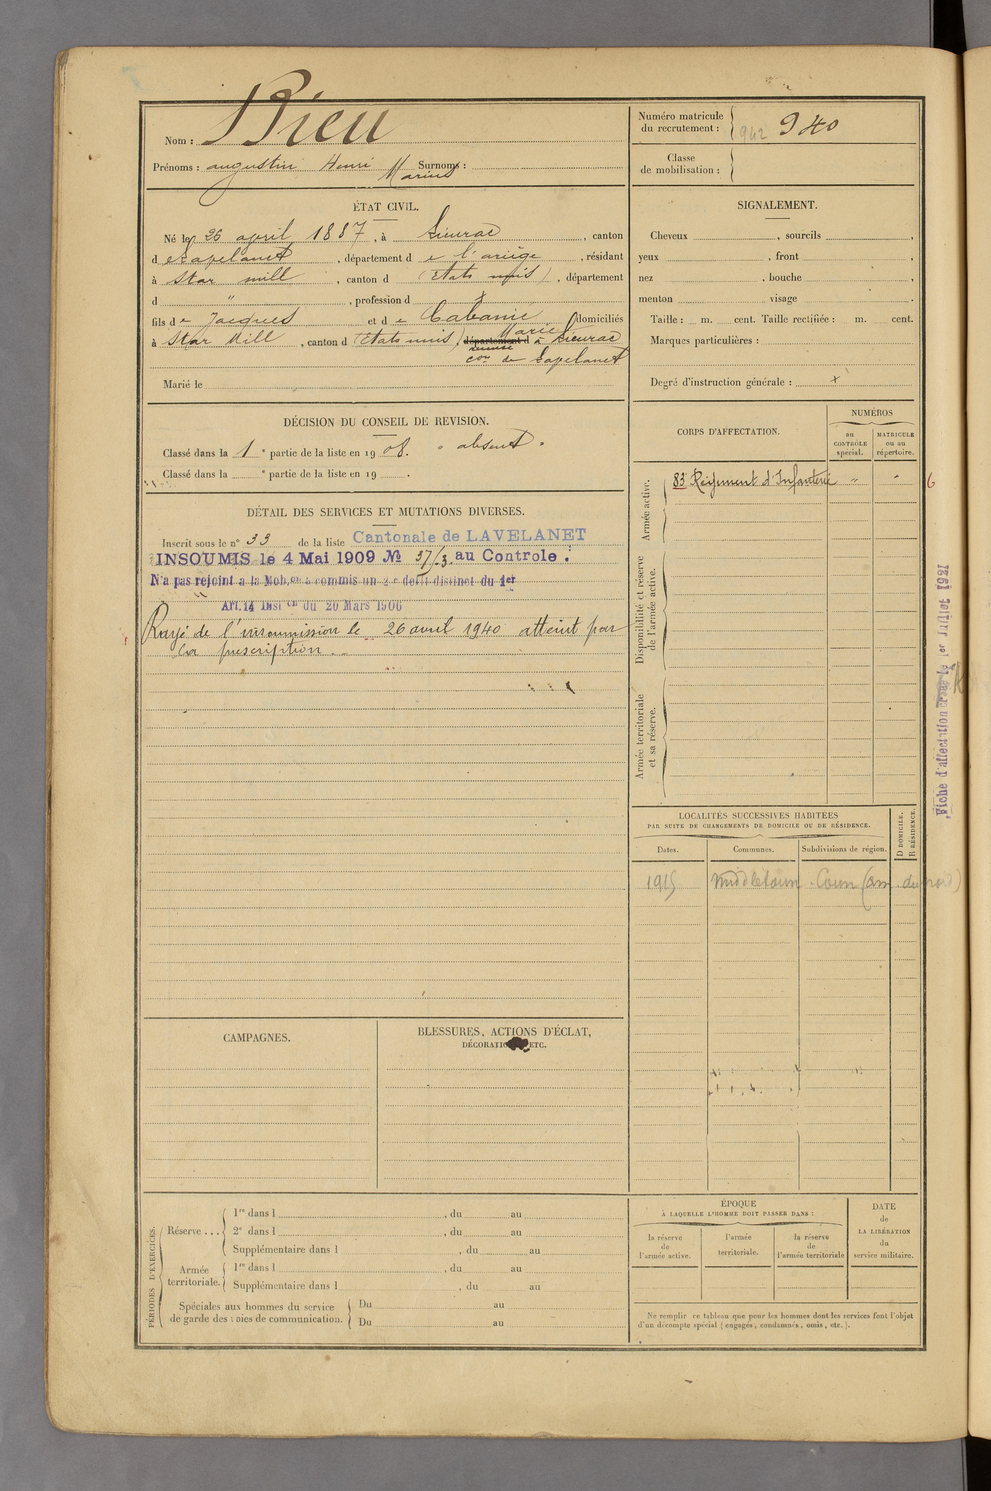 Nom : Rieu
Prénoms : augustin Henri Marius Surnoms :
Numéro matricule du recrutement : 942 940
Classe de mobilisation :
ÉTAT CIVIL.
Né le 26 april 1887, à Lieurac, canton
d e Lapelanet, département d e l'ariège, résidant
à Star mill, canton d (Etats unis), département
d ", profession d x
fils d e Jacques et d e Cabanié Marie domiciliés
à Star Mill, canton d (Etats unis) département d à Lieurac
con de Lapelanet
Marié le
SIGNALEMENT.
Cheveux , sourcils ,
yeux , front ,
nez , bouche ,
menton visage .
Taille : m. cent. Taille rectifiée : m. cent.
Marques particulières :
Degré d'instruction générale : x
DÉCISION DU CONSEIL DE REVISION.
Classé dans la 1 e partie de la liste en 19 08. " absent "
Classé dans la e partie de la liste en 19 .
DÉTAIL DES SERVICES ET MUTATIONS DIVERSES.
Inscrit sous le n° 33 de la liste Cantonale de LAVELANET
INSOUMIS le 4 Mai 1909 No 37/3 au Controle.
N'a pas rejoint à la Mob.on a commis un 2e delit distinct du 1er
Art.14 Inst on du 20 Mars 1906
Rayé de l'insoumission le 26 avril 1940 atteint par
la prescription.
CORPS D'AFFECTATION.
NUMÉROS
au CONTRÔLE spécial.
MATRICULE ou au répertoire.
Armée active.
83 Régiment d'Infanterie " "
6
Disponibilité et réserve de l'armée active.
Armée territoriale et sa réserve.
Fiche d'affectation le 1er Juillet 1921
LOCALITÉS SUCCESSIVES HABITÉES
PAR SUITE DE CHANGEMENTS DE DOMICILE OU DE RÉSIDENCE.
Dates.
Communes.
Subdivisions de région.
D DOMICILE.
R RÉSIDENCE.
1915 Middletown - Conn (am. du nord)
CAMPAGNES.
BLESSURES, ACTIONS D'ÉCLAT,
DÉCORATIONS, ETC.
PÉRIODES D'EXERCICES.
Réserve ...
1re dans l , du au
2e dans l , du au
Supplémentaire dans l , du au
Armée territoriale.
1re dans l , du au
Supplémentaire dans l , du au
Spéciales aux hommes du service
de garde des voies de communication.
Du au
Du au
ÉPOQUE
À LAQUELLE L'HOMME DOIT PASSER DANS :
la réserve de l'armée active.
l'armée territoriale.
la réserve de l'armée territoriale
DATE de LA LIBÉRATION du service militaire.
Ne remplir ce tableau que pour les hommes dont les services font l'objet
d'un décompte spécial (engagés, condamnés, omis, etc.).